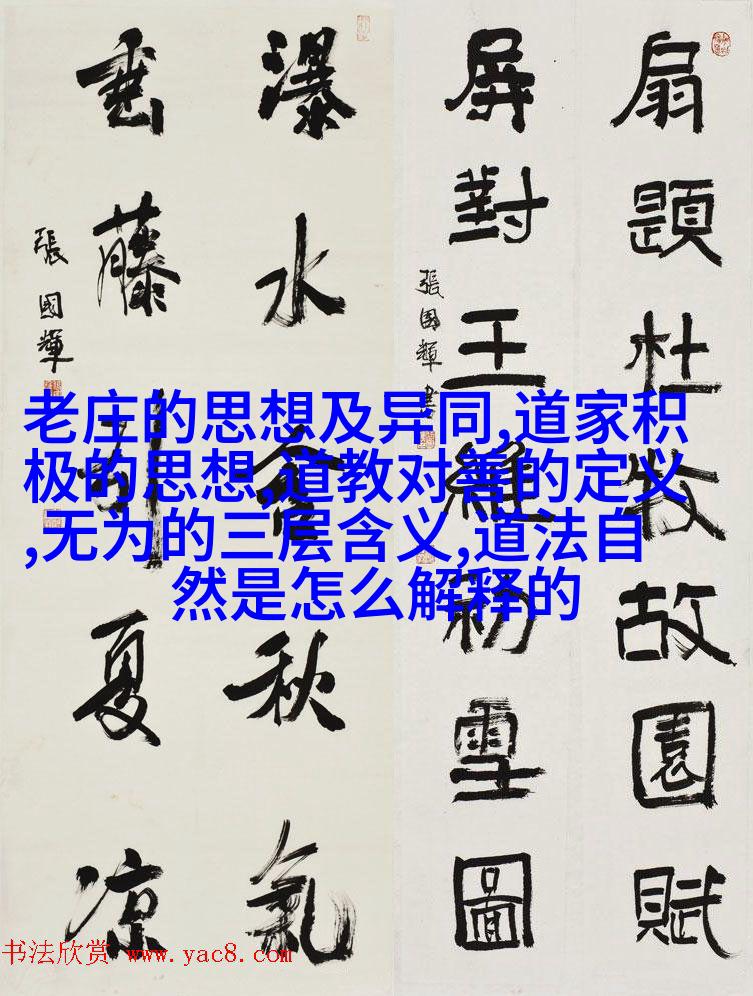 扇題杜牧故園賦
屏對王維初雪圖
張國輝書
瀑水含秋氣
垂藤引夏凉
張國輝
老庄的思想及异同,道家积
极的思想,道教对善的定义
,无为的三层含义,道法自
然是怎么解释的
书法欣赏 www.yac8.com